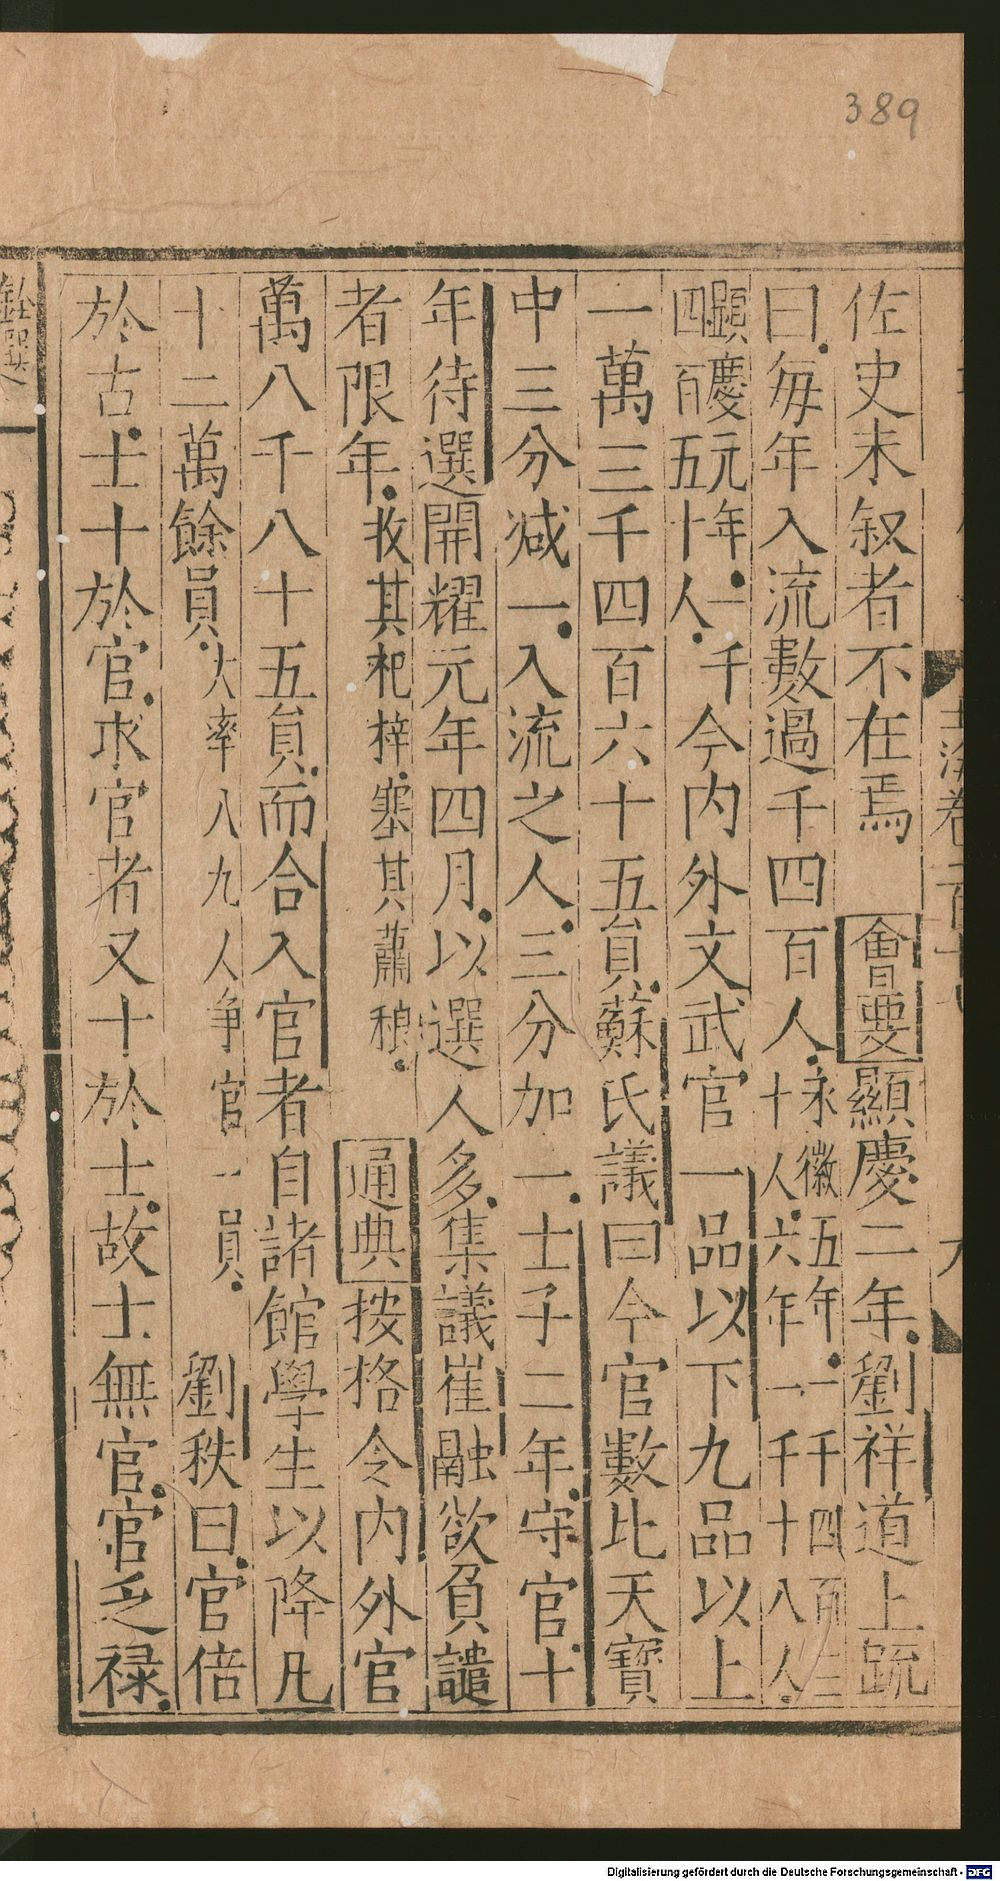 389
佐史未叙者不在焉 會要顯慶二年劉祥道上䟽
曰每年入流數過千四百人永徽五年一千四百三十人六年一千十八人
顯慶元年一千四百五十人今内外文武官一品以下九品以上
一萬三千四百六十五員蘇氏議曰今官數比天寶
中三分减一入流之人三分加一士子二年守官十
年待選開耀元年四月以選人多集議崔融欲負譴
者限年收其杞梓塞其蕭稂 通典按格令内外官
萬八千八十五員而合入官者自諸館學生以降凡
十二萬餘員大率八九人争官一員 劉秩曰官倍
於古士十於官求官者又十於士故士無官官乏禄
Digitalisierung gefördert durch die Deutsche Forschungsgemeinschaft - DFG